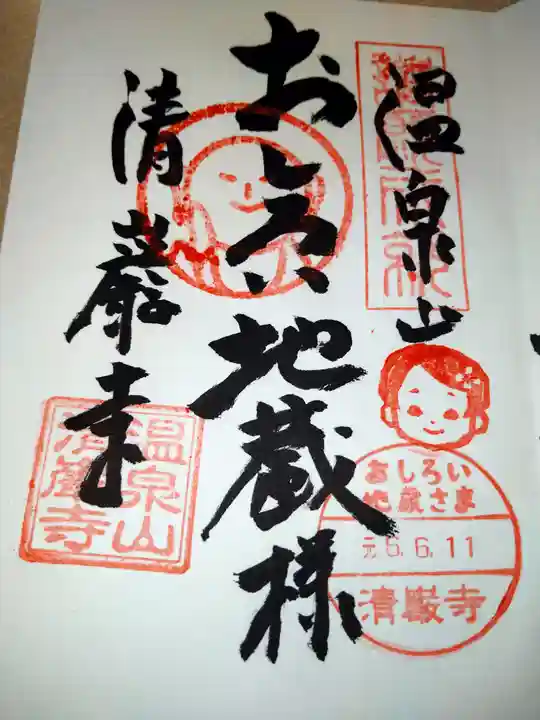 温泉山
おしろい地蔵様
清巖寺
おしろい
地蔵さま
元.6.6.11
清巌寺
温泉山
清巖寺